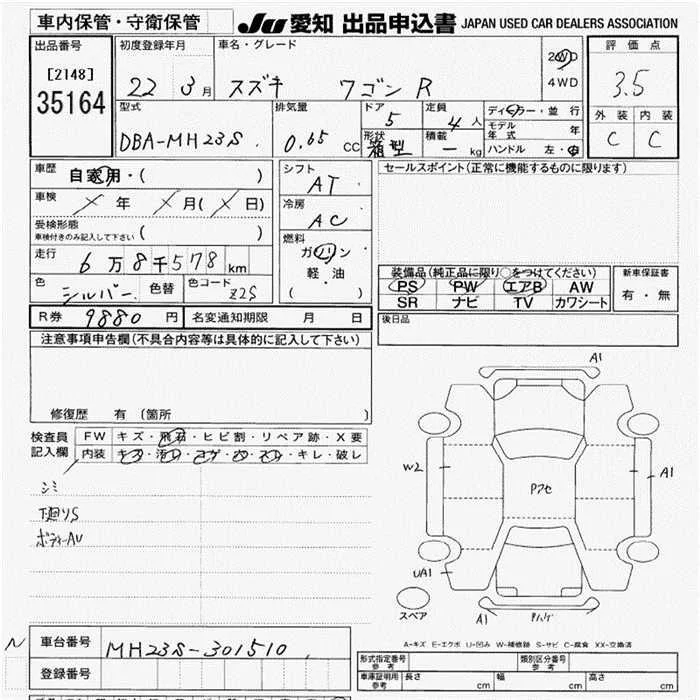 車内保管・守衛保管 JU 愛知 出品申込書 JAPAN USED CAR DEALERS ASSOCIATION
出品番号 初度登録年月 車名・グレード 2WD 評価点
[2148] 22 3月 スズキ ワゴンR 4WD 3.5
35164 型式 排気量 ドア 定員 ディーラー・並行 外装 内装
DBA-MH23S 0.65 CC 5 4人 モデル年式 年 C C
形状 箱型 積載 ー kg ハンドル 左・右
車歴 自家用・( ) シフト AT セールスポイント(正常に機能するものに限ります)
車検 年 月( 日) 冷房 AC
受検形態
車検付きのみ記入して下さい ( )
燃料 ガソリン
軽・油
( )
走行 6万8千578km
装備品(純正品に限り○をつけてください) 新車保証書
色 シルバー 色替 色コード Z2S
PS PW エアB AW 有・無
SR ナビ TV カワシート
R券 9880円 名変通知期限 月 日 後日品
注意事項申告欄(不具合内容等は具体的に記入して下さい)
修復歴 有 (箇所 )
検査員記入欄 FW キズ・飛石・ヒビ割・リペア跡・X要
内装 キズ・汚れ・コゲ・穴・スレ・キレ・破レ
シミ
下廻りS
ボディーAU
A1
W2
A1
Pアセ
UA1
スペア
A1
A-キズ E-エクボ U-凹み W-補修跡 S-サビ C-腐食 XX-交換済
N 車台番号 MH23S-301510
形式指定番号 参考 類別区分番号 参考
登録番号 車庫証明用 参考 長さ cm 幅 cm 高さ cm